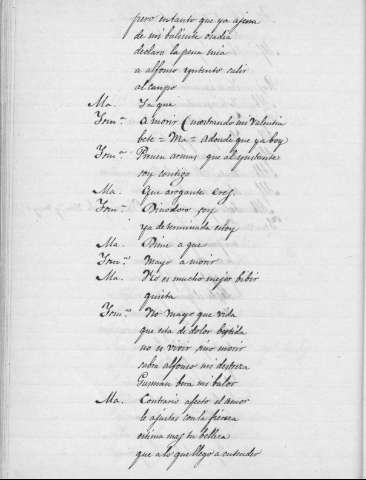 pero entanto que ya agena
de mi baliente osadia
declaro la pena mia
a alfonso yntento salir
al campo
Ma. Ya que
a morir (mostrando mi Valentia
bete = Ma = adonde que ya boy
Preven armas que al ynstante
soy contigo
Ma. Que arogante eres.
soy
ya determinada estoy
Ma. Dime a que
Mayo a morir
Ma. No es mucho mejor bibir
quieta
No Mayo que vida
que esta de dolor
no es vivir sino morir
sabra alfonso mi destreza
Gusman bera mi balor
Ma. Contrario afecto el amor
le ajustas con la fiereza
estima mas tu belleza
que a lo que llego a entender